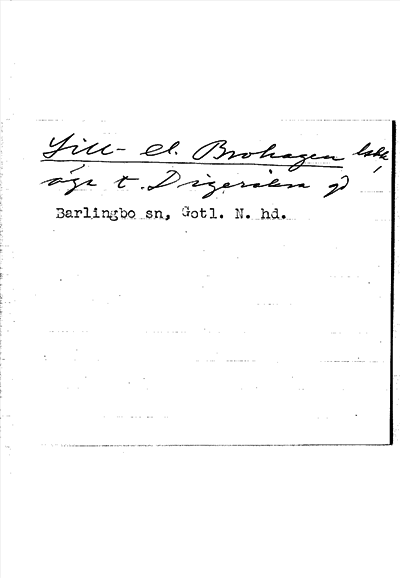 Lill- el. Brohagen
äga t. Digeråkra gd
Barlingbo sn, Gotl. N. hd.